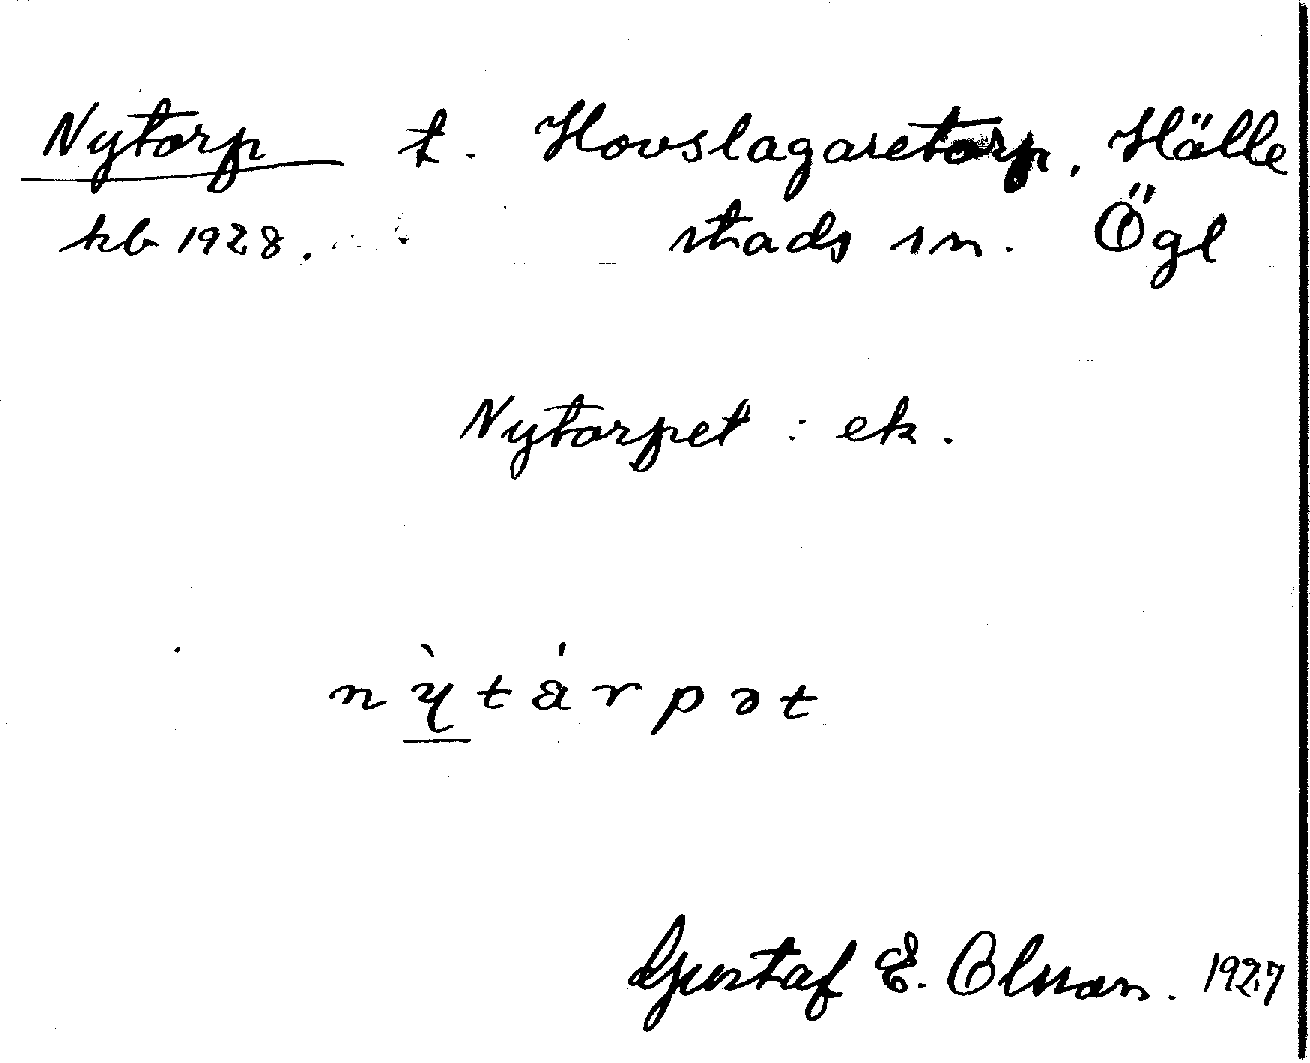 Nytorp t. Hovslagaretorp, Hälle
kb 1928. stads sn. Ögl
Nytorpet : ek.
nỳ̱tárpət
Gustaf E. Olsson. 1927